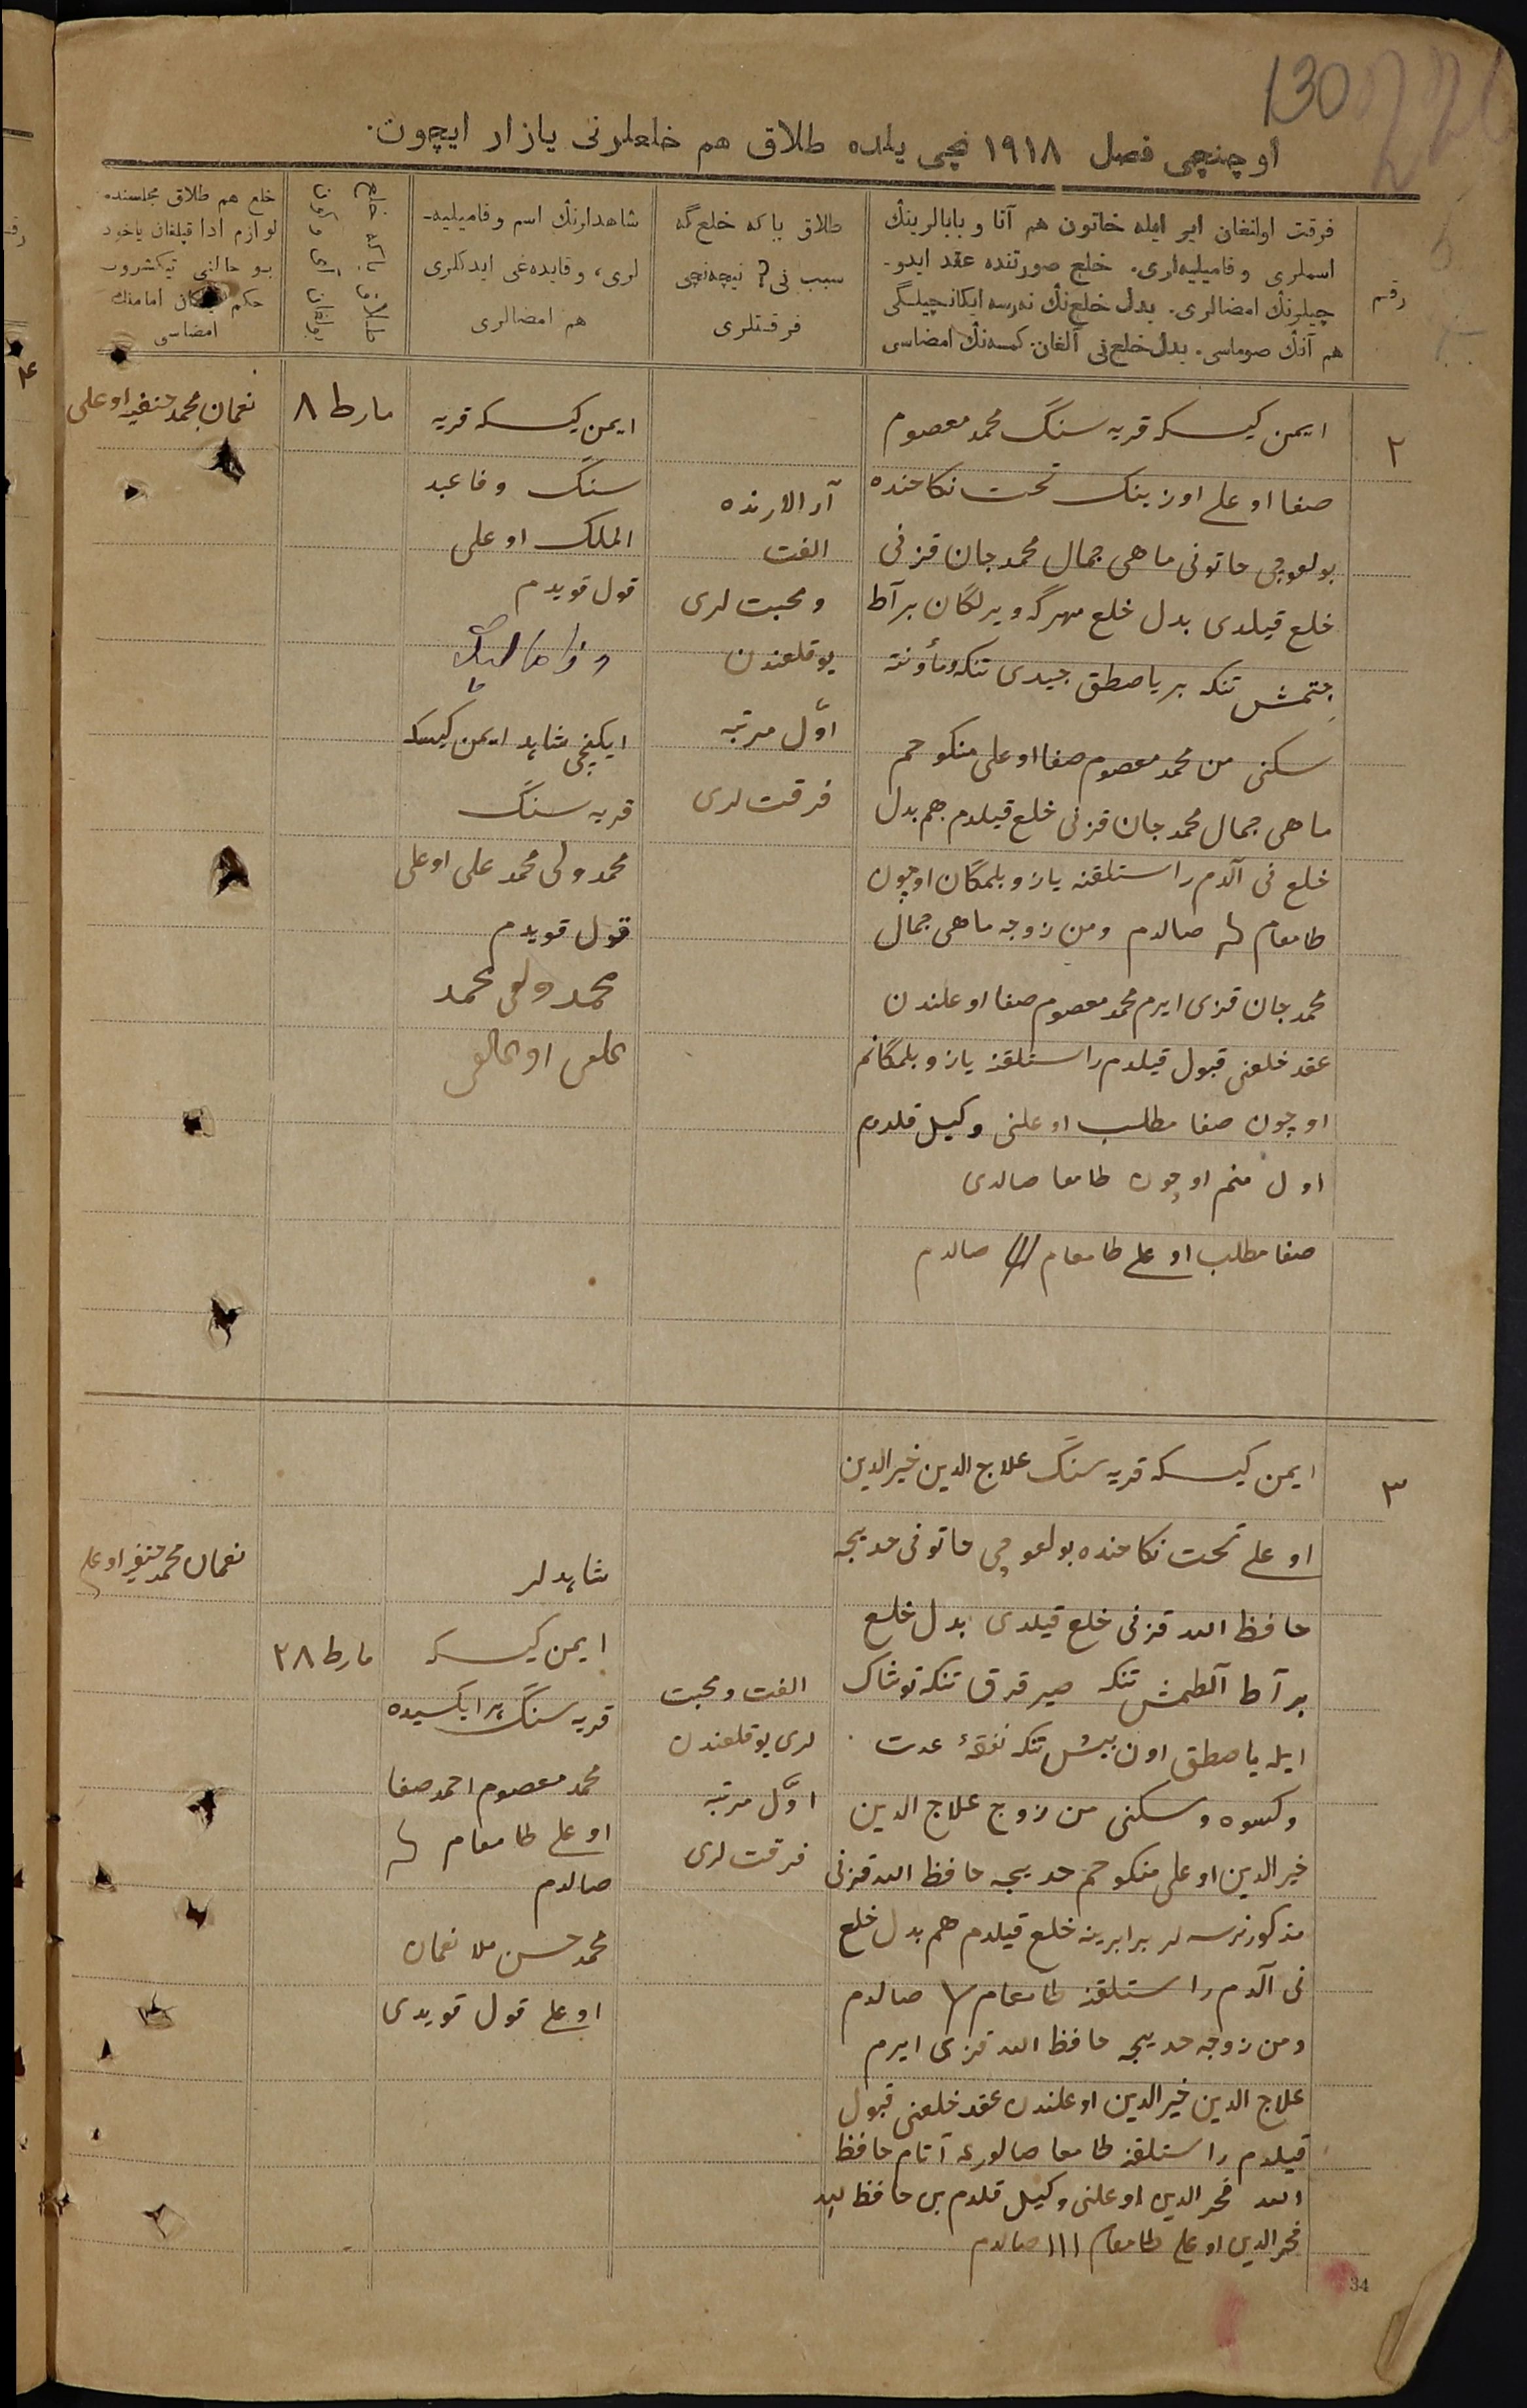 130
اوچنچی فصل ۱۹۱۸ نچی یلده طلاق هم خلعلرنی یازار ایچون.
رقم
فرقت اولنغان ایر ایله خاتون هم آتا و بابالرینڭ
اسملری و فامیلیه‌لری. خلع صورتنده عقد ایدو-
چیلرنڭ امضالری. بدل خلع‌نڭ نه‌رسه ایکانچیلگی
هم آنڭ صوماسی. بدل خلع‌نی آلغان کمسه‌نڭ امضاسی
طلاق یا که خلع گه
سبب نی؟ نیچه‌نچی
فرقتلری
شاهدلرنڭ اسم و فامیلیه-
لری، و قایده‌غی ایدکلری
هم امضالری
خلع یا که طلاق
خلع هم طلاق مجلسنده
لوازم ادا قیلغان یاخود
بو حالنی تیکشروب
حکم امامنڭ
امضاسی
۲
ایمن کیسکه قریه سنڭ محمد معصوم
صفا اوغلی اوزینڭ تحت نکاحنده
بولغوچی خاتونی ماهی جمال محمدجان قزنی
خلع قیلدی بدل خلع مهرگه ویرلگان بر آط
یتمش تنکه بر یاصطق جیدی تنکه
سکنی من محمد معصوم صفا اوغلی منکوحم
ماهی جمال محمدجان قزنی خلع قیلدم هم بدل
خلع نی آلدم راستلقنه یازو بلمگان اوچون
طامغام صالدم و من زوجه ماهی جمال
محمدجان قزی ایرم محمد معصوم صفا اوغلندن
عقد خلعنی قبول قیلدم راستلقنه یازو بلمگانم
اوچون صفا مطلب اوغلنی وکیل قلدم
اول منم اوچون طامغا صالدی
صفا مطلب اوغلی طامغام صالدم
آرالارنده
الفت
و محبت لری
یوقلغندن
اوّل مرتبه
فرقت لری
ایمن کیسکه قریه
سنڭ وفا عبد
الملک اوغلی
قول قویدم
ایکنچی شاهد ایمن کیسکه
قریه سنڭ
محمدولی محمدعلی اوغلی
قول قویدم
محمدولی محمد
علی اوغلی
مارط ۸
نعمان محمدحنفیه اوغلی
۳
ایمن کیسکه قریه سنڭ علاج الدین خیرالدین
اوغلی تحت نکاحنده بولغوچی خاتونی خدیجه
حافظ الله قزنی خلع قیلدی بدل خلع
بر آط آلطمش تنکه صیر قرق تنکه توشاک
ایله یاصطق اون بیش تنکه نفقهٔ عدت
و کسوه و سکنی من زوج علاج الدین
خیرالدین اوغلی منکوحم خدیجه حافظ الله قزنی
مذکور نرسه لر برابرینه خلع قیلدم هم بدل خلع
نی آلدم راستلقنه طامغام صالدم
و من زوجه خدیجه حافظ الله قزی ایرم
علاج الدین خیرالدین اوغلندن عقد خلعنی قبول
قیلدم راستلقنه طامغا صالورغه آتام حافظ
الله فخرالدین اوغلنی وکیل قلدم من حافظ الله
فخرالدین اوغلی طامغام ااا صالدم
الفت و محبت
لری یوقلغندن
اوّل مرتبه
فرقت لری
شاهدلر
ایمن کیسکه
قریه سنڭ
محمد معصوم احمد صفا
اوغلی طامغام
صالدم
محمد حسن ملا نعمان
اوغلی قول قویدی
مارط ۲۸
نعمان محمدحنفیه اوغلی
34